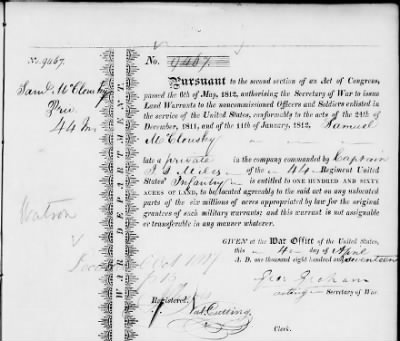 No. 9467.
Sam.l McClousky
Priv
44 In
Watson
WAR DEPARTMENT.
No. 9467.
Pursuant to the second section of an Act of Congress,
passed the 6th of May, 1812, authorising the Secretary of War to issue
Land Warrants to the noncommissioned Officers and Soldiers enlisted in
the service of the United States, conformably to the acts of the 24th of
December, 1811, and of the 11th of January, 1812, Samuel
McClousky
late a private in the company commanded by Captain
J J Miles of the 44 Regiment United
States' Infantry is entitled to ONE HUNDRED AND SIXTY
ACRES OF LAND, to be located agreeably to the said act on any unlocated
parts of the six millions of acres appropriated by law for the original
grantees of such military warrants; and this warrant is not assignable
or transferable in any manner whatever.
GIVEN at the War Office of the United States,
this 4 day of April
A. D. one thousand eight hundred and seventeen
Geo: Graham
acting Secretary of War
Registered.
Nat. Cutting
Clerk.